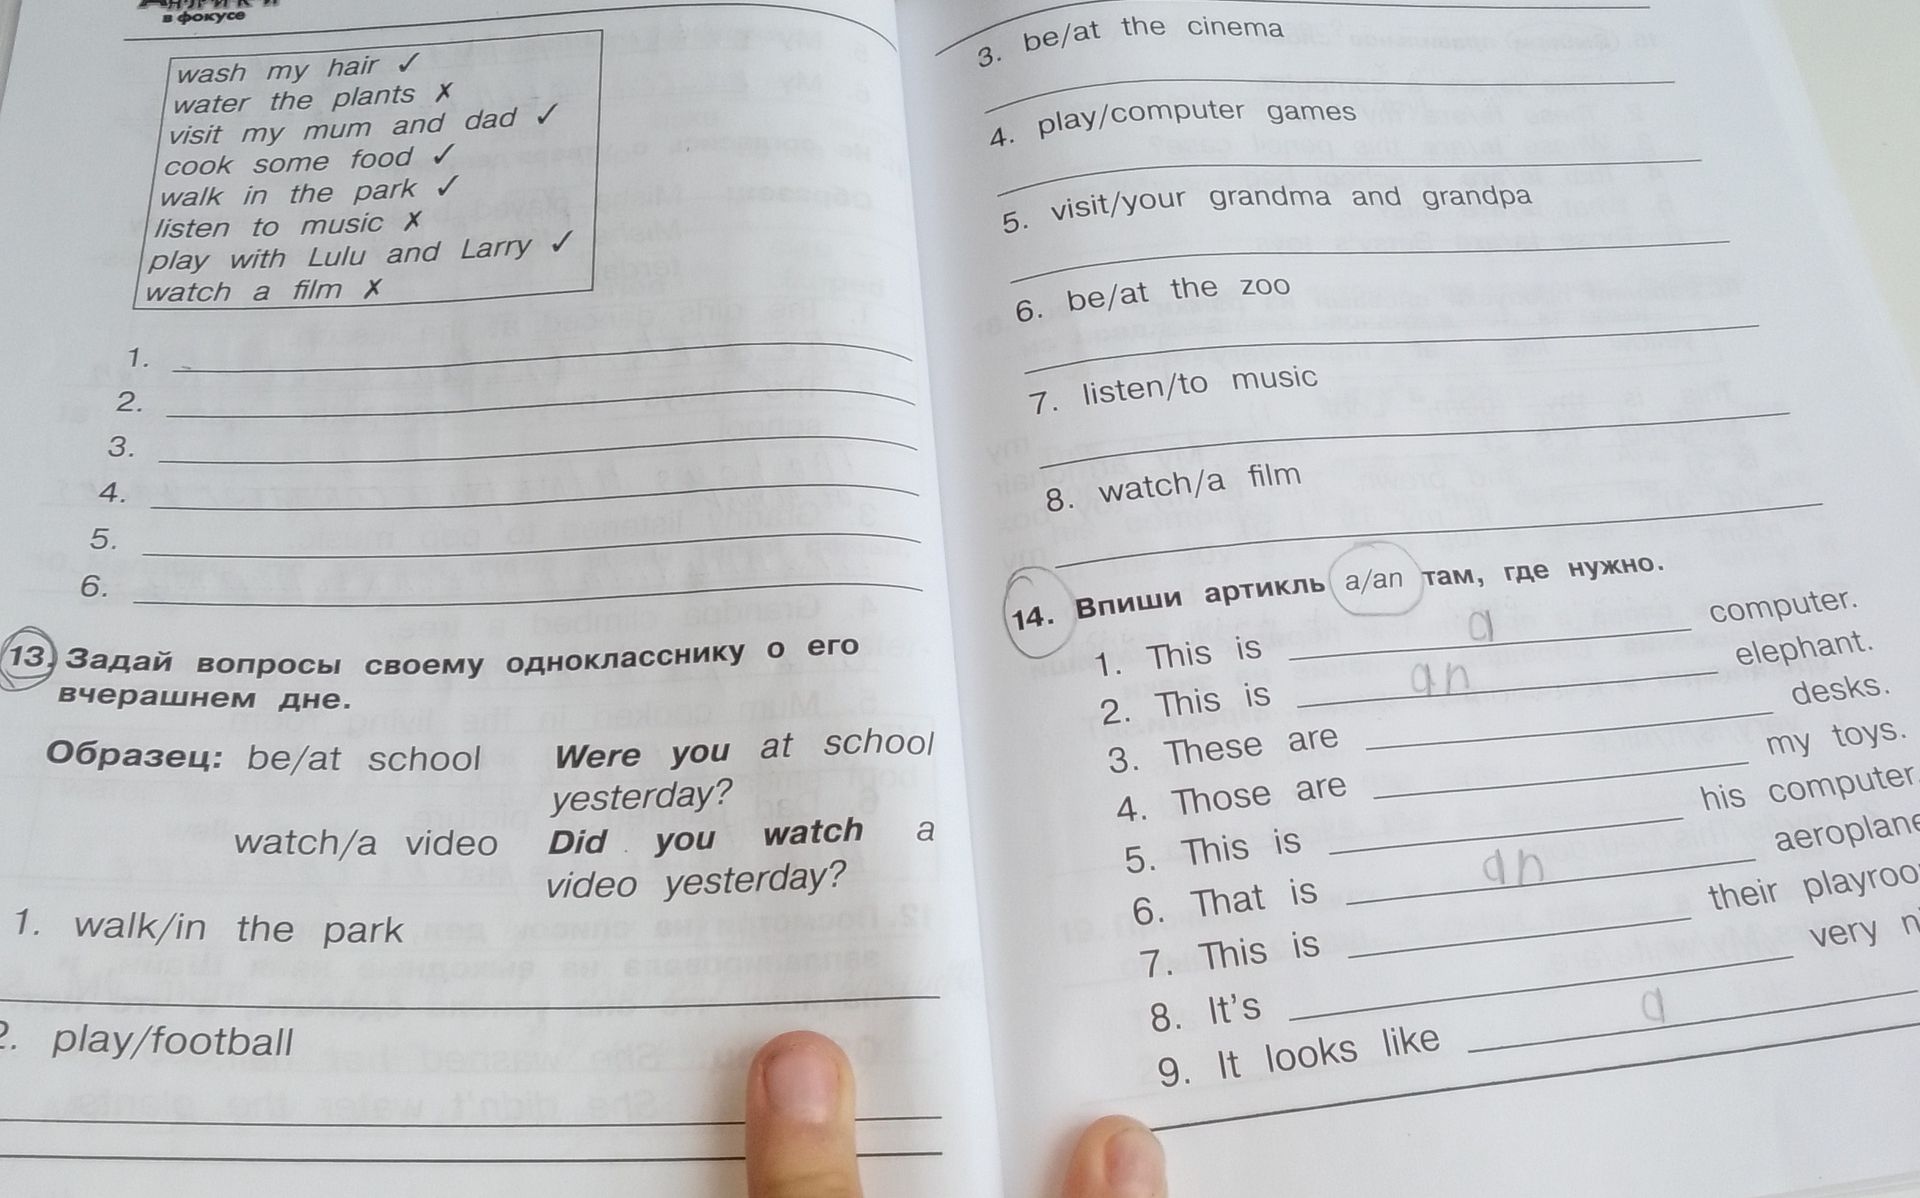 в фокусе
wash my hair ✓
water the plants ✗
visit my mum and dad ✓
cook some food ✓
walk in the park ✓
listen to music ✗
play with Lulu and Larry ✓
watch a film ✗
1.
2.
3.
4.
5.
6.
13. Задай вопросы своему однокласснику о его
вчерашнем дне.
Образец: be/at school Were you at school
yesterday?
watch/a video Did you watch a
video yesterday?
1. walk/in the park
2. play/football
3. be/at the cinema
4. play/computer games
5. visit/your grandma and grandpa
6. be/at the zoo
7. listen/to music
8. watch/a film
14. Впиши артикль a/an там, где нужно.
1. This is a computer.
2. This is an elephant.
3. These are desks.
4. Those are my toys.
5. This is his computer.
6. That is an aeroplane
7. This is their
8. It's very
9. It looks like a